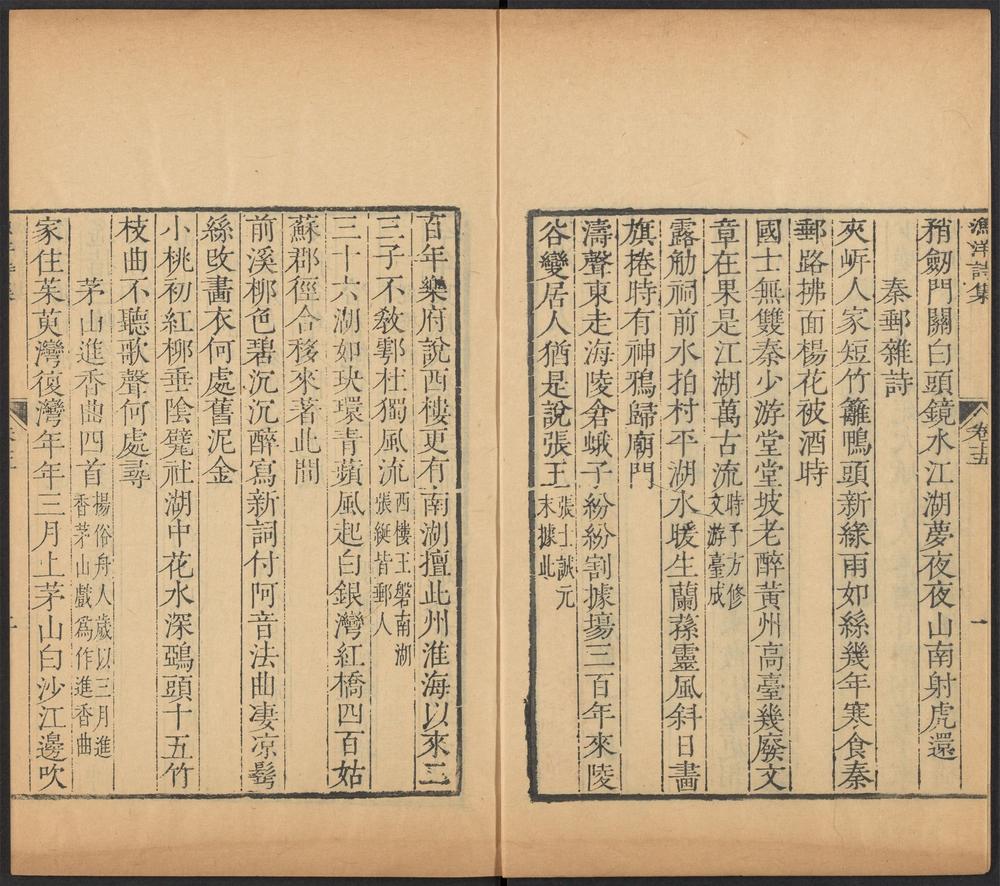 漁洋詩集
卷十五
一
矟劒門關白頭鏡水江湖夢夜夜山南射虎還
秦郵雜詩
夾岍人家短竹籬鴨頭新綠雨如絲幾年寒食秦
郵路拂面楊花被酒時
國士無雙秦少游堂堂坡老醉黃州高臺幾廢文
章在果是江湖萬古流時予方修文游臺成
露觔祠前水拍村平湖水暖生蘭蓀靈風斜日畵
旗捲時有神鴉歸廟門
濤聲東走海陵倉蛾子紛紛割據塲三百年來陵
谷變居人猶是說張王張士誠元末據此
百年樂府說西樓更有南湖擅此州淮海以來二
三子不敎鄠杜獨風流西樓王磐南湖張綖皆郵人
三十六湖如玦環青蘋風起白銀灣紅橋四百姑
蘇郡徑合移來著此間
前溪柳色碧沉沉醉寫新詞付阿音法曲凄凉髩
絲改畵衣何處舊泥金
小桃初紅柳垂陰甓社湖中花水深鵶頭十五竹
枝曲不聽歌聲何處尋
茅山進香曲四首楊俗舟人歲以三月進香茅山戲爲作進香曲
家住茱萸灣復灣年年三月上茅山白沙江邊吹